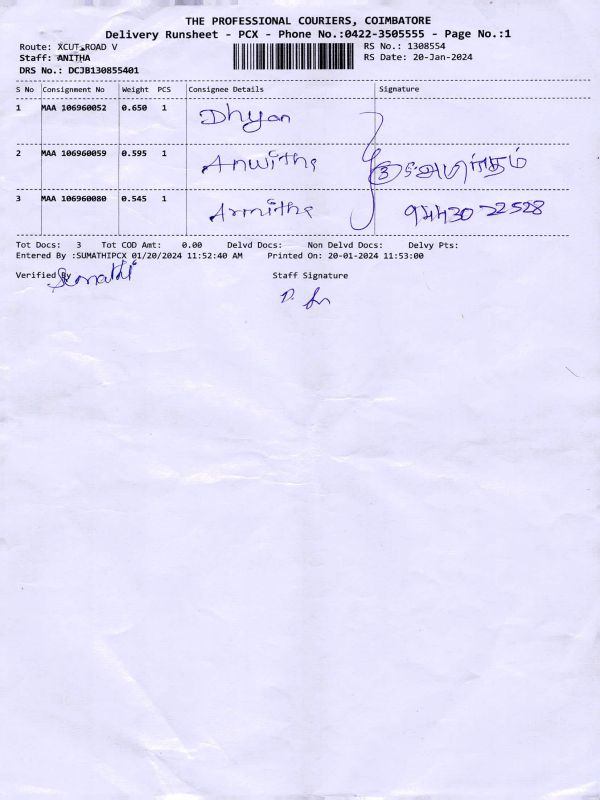 THE PROFESSIONAL COURIERS, COIMBATORE
Delivery Runsheet - PCX - Phone No.:0422-3505555 - Page No.:1
Route: XCUT ROAD V RS No.: 1308554
Staff: ANITHA RS Date: 20-Jan-2024
DRS No.: DCJB130855401
S No Consignment No Weight PCS Consignee Details Signature
1 MAA 106960052 0.650 1 Dhyan
2 MAA 106960059 0.595 1 Anwitha 3
3 MAA 106960080 0.545 1 94430-22528
Tot Docs: 3 Tot COD Amt: 0.00 Delvd Docs: Non Delvd Docs: Delvy Pts:
Entered By :SUMATHIPCX 01/20/2024 11:52:40 AM Printed On: 20-01-2024 11:53:00
Verified By Sumathi Staff Signature